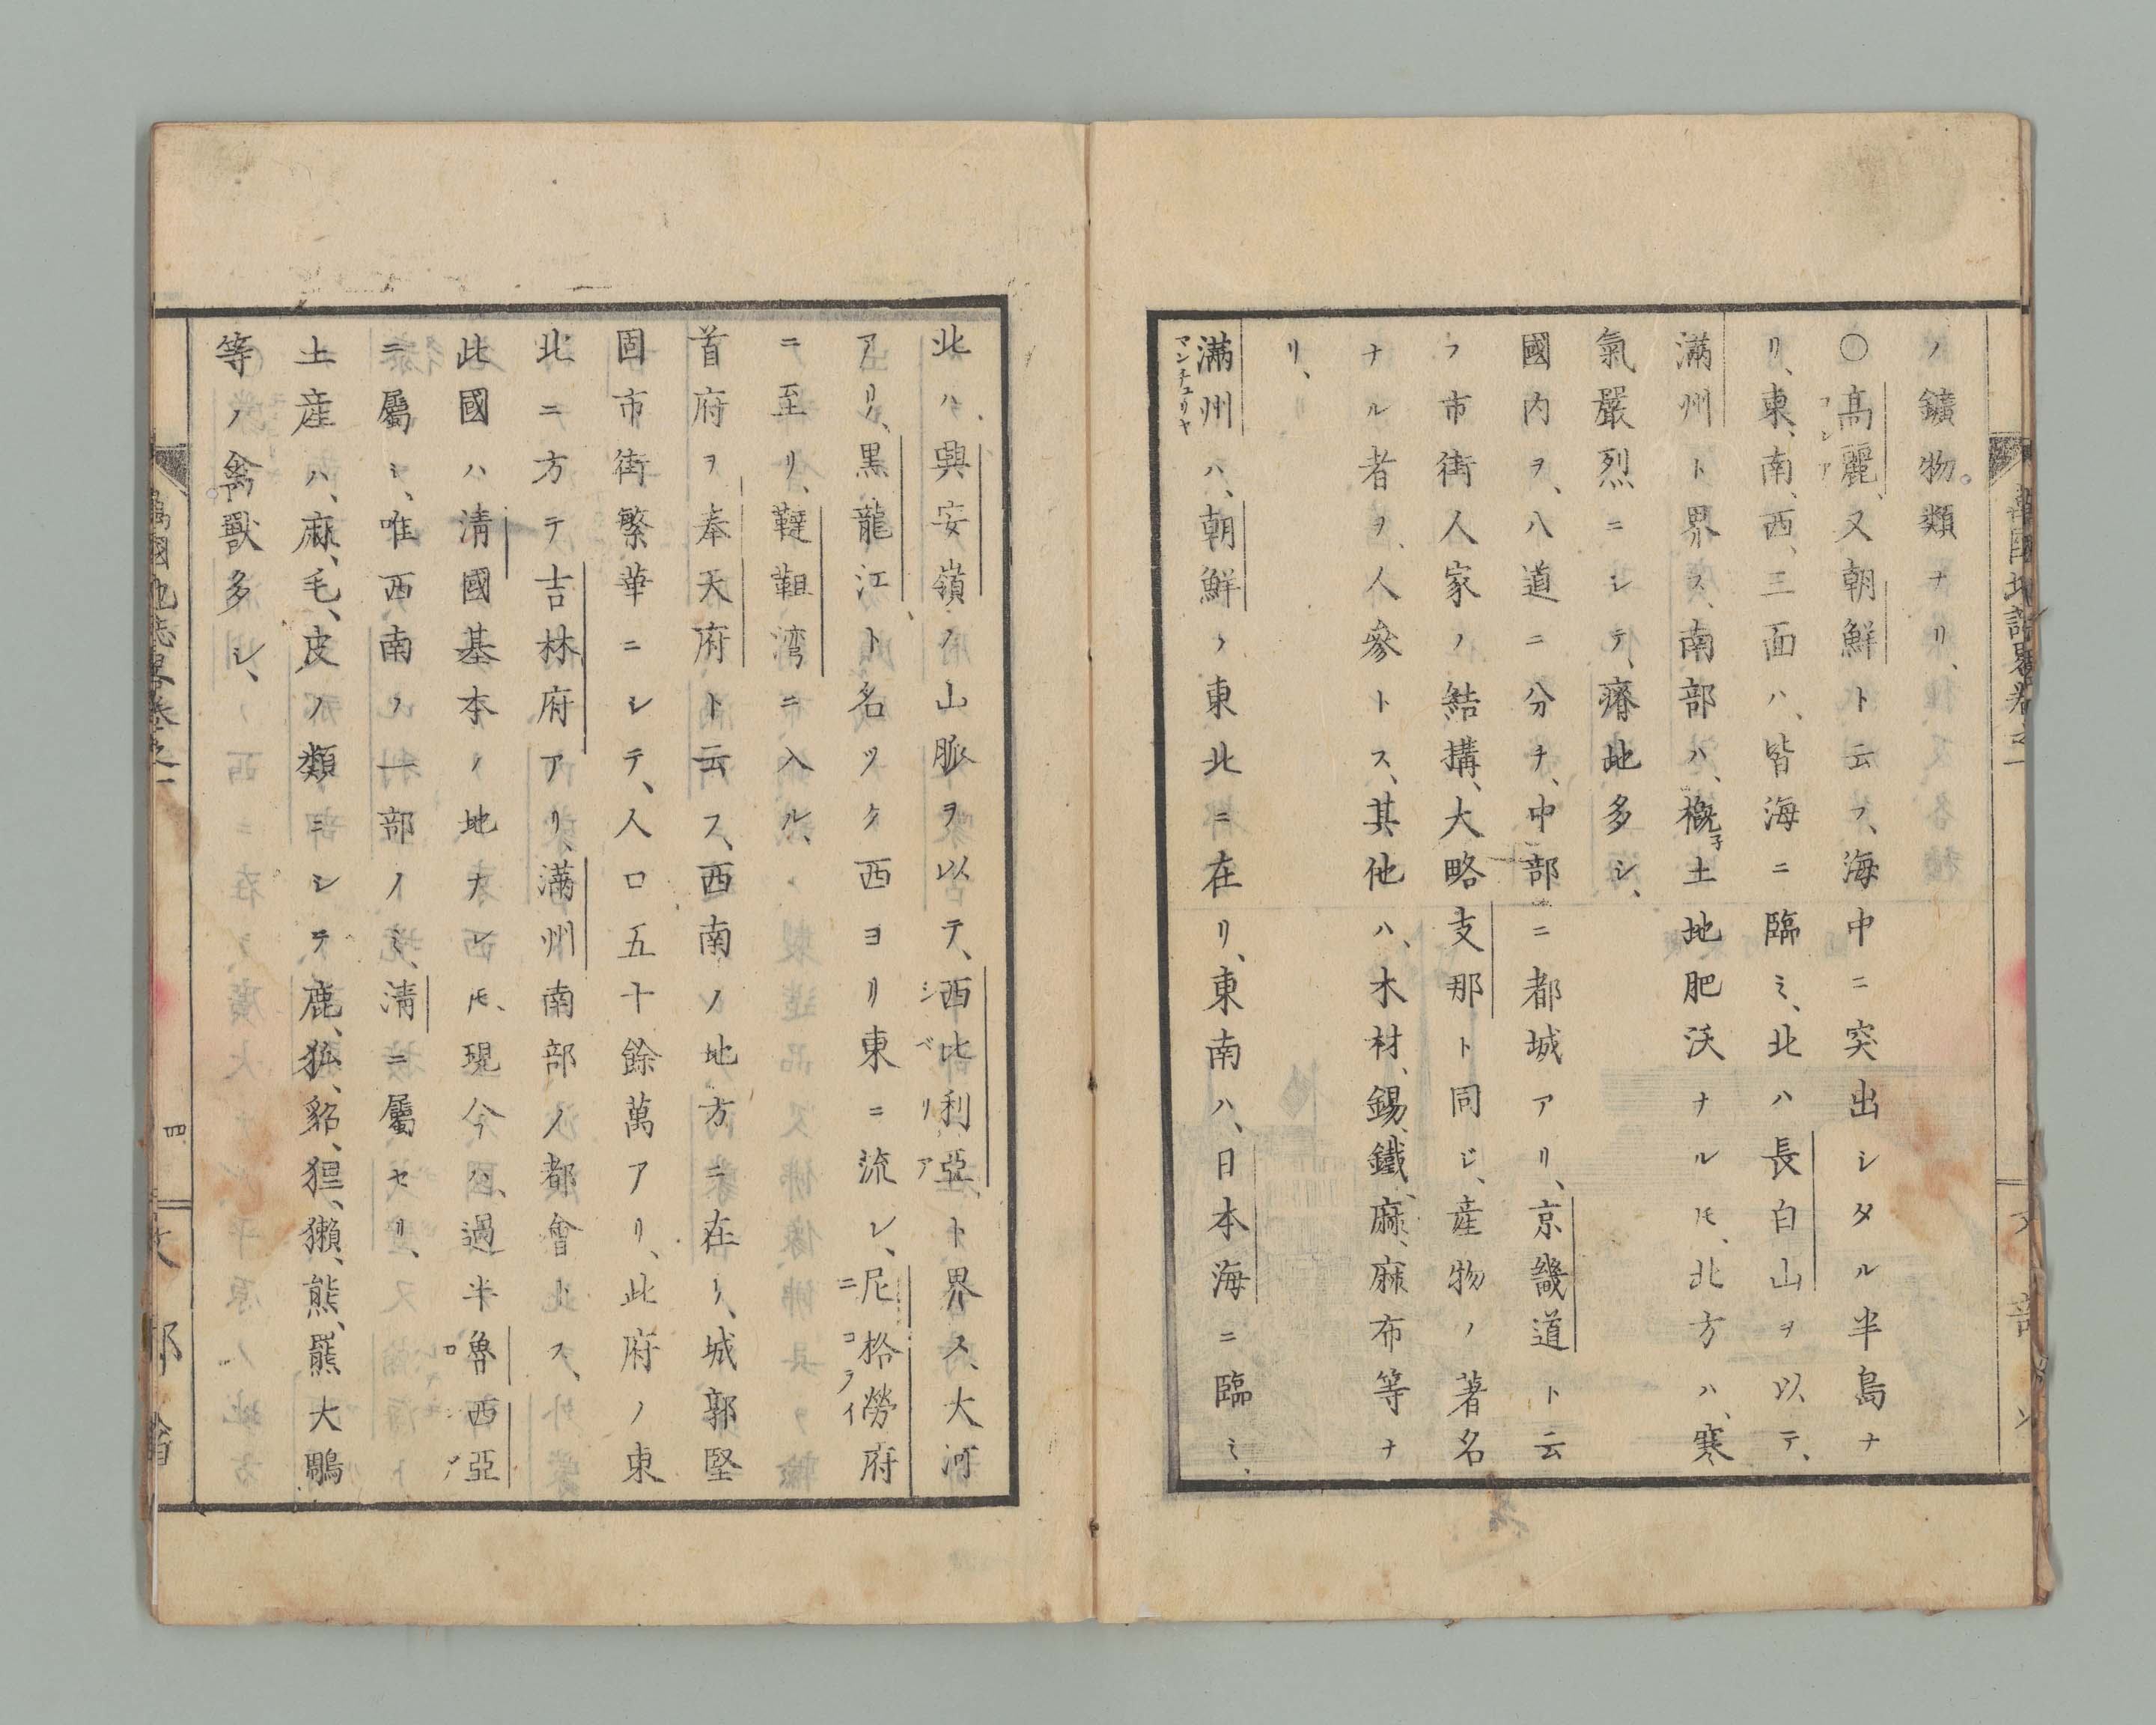 ノ鑛物類ナリ、
〇高麗、又朝鮮ト云フ、海中ニ突出シタル半島ナ
コレア
リ、東、南、西、三面ハ、皆海ニ臨ミ、北ハ長白山ヲ以テ、
滿州ト界ス、南部ハ、概子土地肥沃ナルㇳモ、北方ハ、寒
氣嚴烈ニシテ、瘠地多シ、
國内ヲ、八道ニ分チ、中部ニ都城アリ、京畿道ト云
フ市街人家ノ結搆、大略支那ト同ジ、産物ノ著名
ナル者ヲ、人參トス、其他ハ、木材、錫、鐵、麻、麻布等ナ
リ、
滿州ハ、朝鮮ノ東北ニ在リ、東南ハ、日本海ニ臨ミ、
マンチュリヤ
北ハ、興安嶺ノ山脈ヲ以テ、西比利亞、ト界ス、大河
シベリア
アリ、黒龍江ト名ツク西ヨリ東ニ流レ、尼格勞府
ニコライ
ニ至リ、韃靼湾ニ入ル、
首府ヲ奉天府ト云ス、西南ノ地方ニ在リ、城郭堅
固市街繁華ニシテ、人口五十餘萬アリ、此府ノ東
北ニ方テ吉林府アリ、滿州南部ノ都會トス、
此國ハ清國基本ノ地ナレㇳモ、現今ハ、過半魯西亞
ロシア
ニ屬シ、唯西南ノ一部ノミ、清ニ屬セリ、
土産ハ、麻、毛、皮ノ類ニシテ鹿、狐、貂、狸、獺、熊、羆大鵰
等ノ禽獸多シ、
萬國地誌畧卷之一
四
文部省